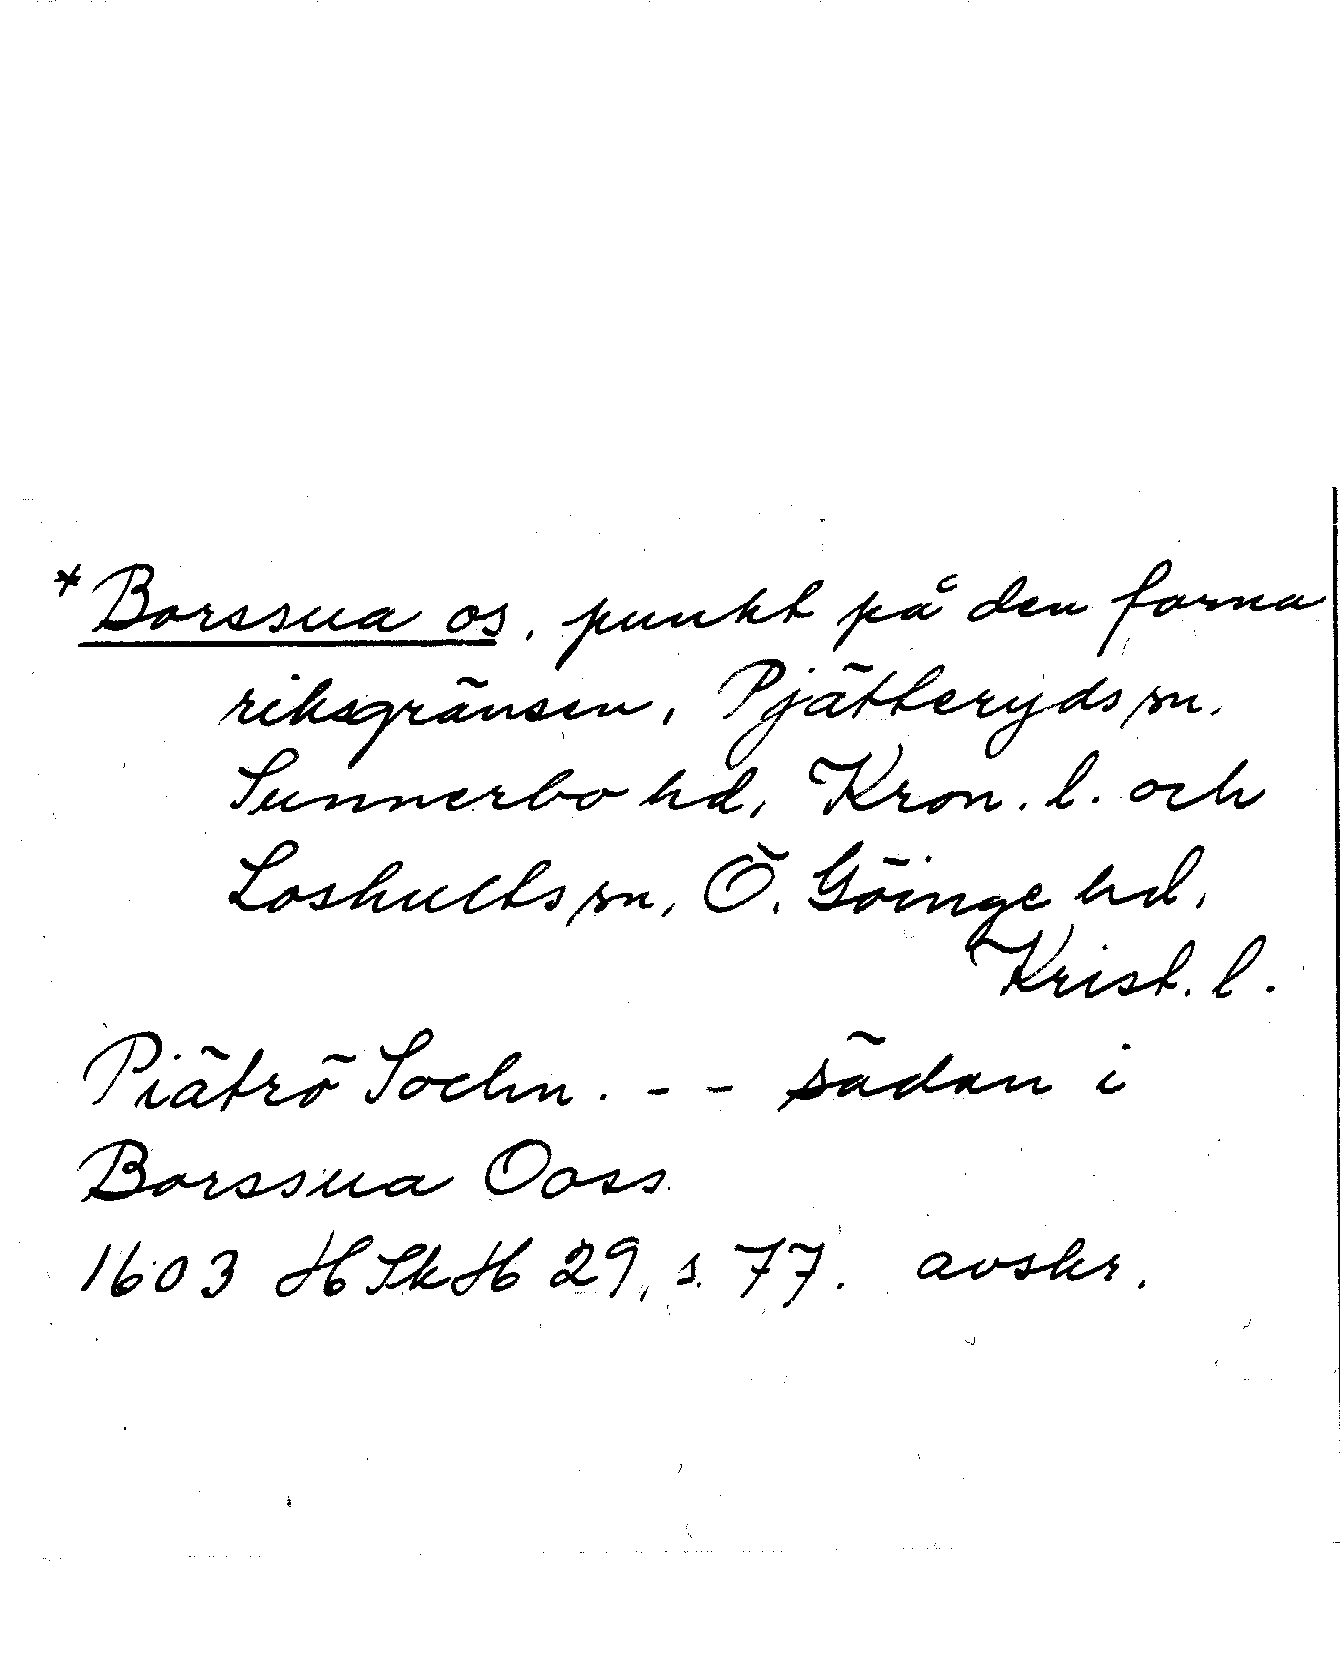 *Borssua os, punkt på den forna
riksgränsen, Pjätteryds sn,
Sunnerbo hd, Kron. l. och
Loshults sn, Ö. Göinge hd,
Krist. l.
Piätrö Sochn. - - sädan i
Borssua Ooss
1603 HSkH 29, s. 77. avskr.